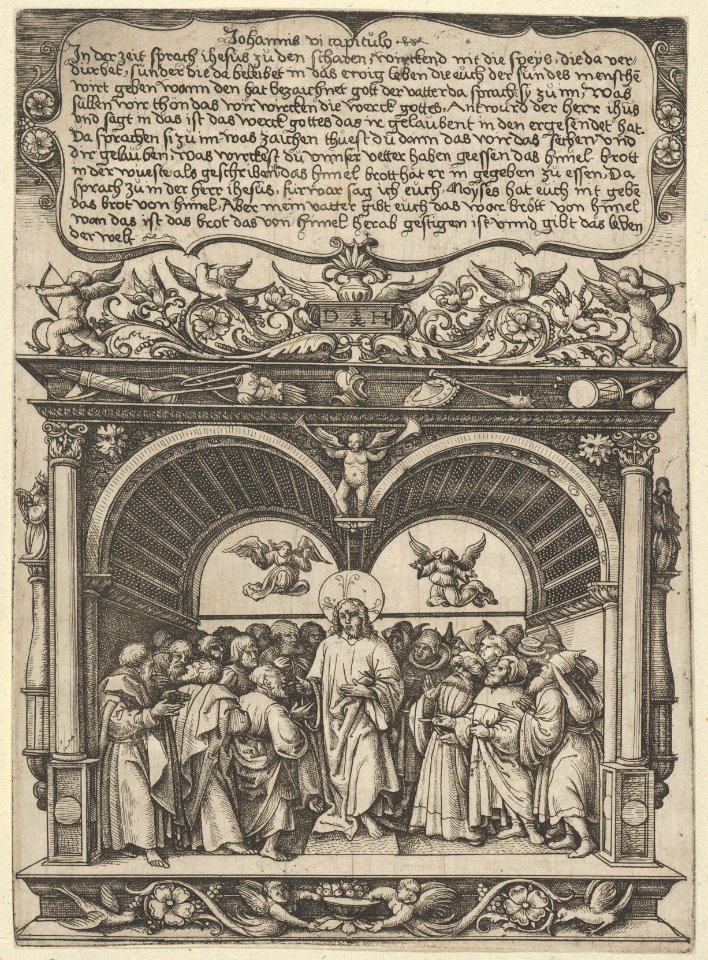 Johannis vi capitulo
In der zeit sprach ihesus zu den scharen, wirckend nit die speys, die da ver-
dirbet, sunder die da beleibet in das ewig leben die euch der sun des mensche
wirt geben wann den hat bezaichnet gott der vatter da sprach sy zu im, was
sullen wir thon das wir wircken die werck gottes, Antwurd der herr ihus
und sagt in das ist das werck gottes das ir gelaubent in den er gesendet hat.
Da sprachen si zu im was zaichen thuest du dann das wir das sehen und
dir gelauben, was wirckest du unser vetter haben geessen das himel brott
in der wueste als geschriben das himel brott hat er in gegeben zu essen, Da
sprach zu in der herr ihesus, furwar sag ich euch, Moyses hat euch nit gebe
das brot von himel, Aber mein vatter gibt euch das war brott von himel
wan das ist das brot das von himel herab gestigen ist unnd gibt das leben
der welt
D H